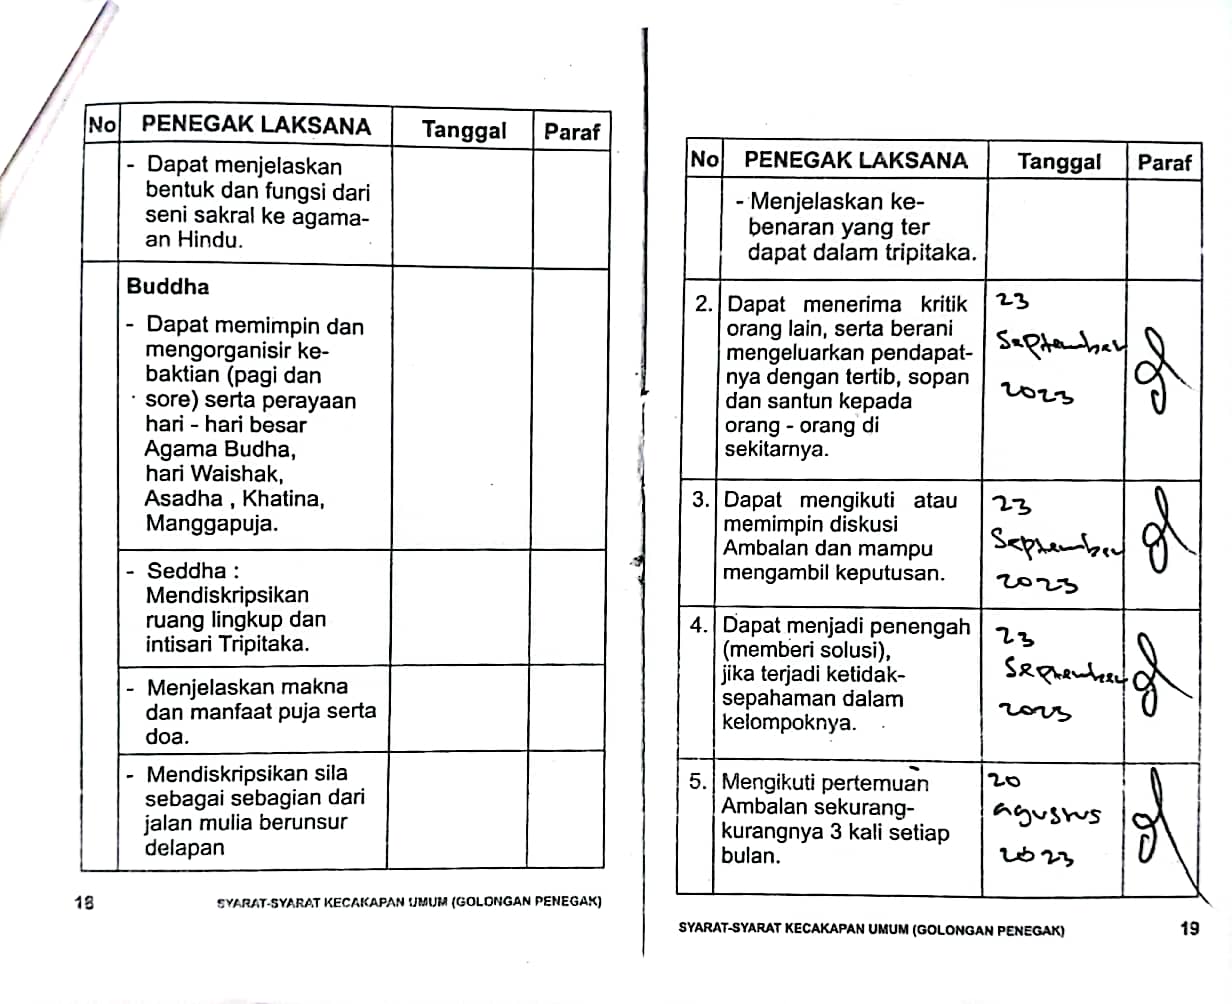 No PENEGAK LAKSANA Tanggal Paraf
- Dapat menjelaskan
bentuk dan fungsi dari
seni sakral ke agama-
an Hindu.
Buddha
- Dapat memimpin dan
mengorganisir ke-
baktian (pagi dan
sore) serta perayaan
hari - hari besar
Agama Budha,
hari Waishak,
Asadha , Khatina,
Manggapuja.
- Seddha :
Mendiskripsikan
ruang lingkup dan
intisari Tripitaka.
- Menjelaskan makna
dan manfaat puja serta
doa.
- Mendiskripsikan sila
sebagai sebagian dari
jalan mulia berunsur
delapan
18 SYARAT-SYARAT KECAKAPAN UMUM (GOLONGAN PENEGAK)
No PENEGAK LAKSANA Tanggal Paraf
- Menjelaskan ke-
benaran yang ter
dapat dalam tripitaka.
2. Dapat menerima kritik
orang lain, serta berani
mengeluarkan pendapat-
nya dengan tertib, sopan
dan santun kepada
orang - orang di
sekitarnya.
23
September
2023
3. Dapat mengikuti atau
memimpin diskusi
Ambalan dan mampu
mengambil keputusan.
23
September
2023
4. Dapat menjadi penengah
(memberi solusi),
jika terjadi ketidak-
sepahaman dalam
kelompoknya.
23
September
2023
5. Mengikuti pertemuan
Ambalan sekurang-
kurangnya 3 kali setiap
bulan.
20
agustus
2023
SYARAT-SYARAT KECAKAPAN UMUM (GOLONGAN PENEGAK) 19